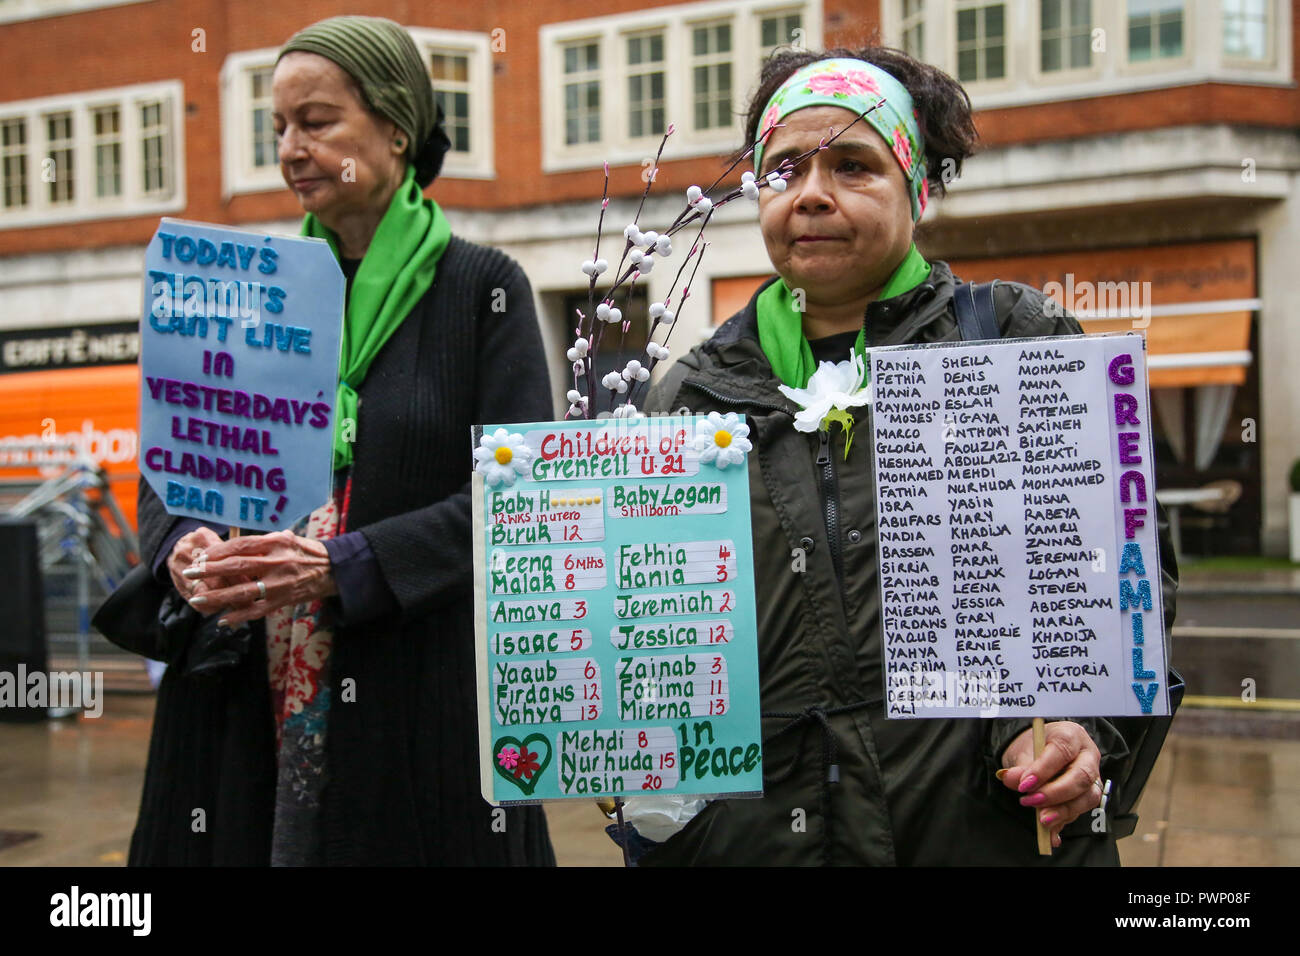 TODAY'S
TENANTS
CAN'T LIVE
IN
YESTERDAY'S
LETHAL
CLADDING
BAN IT!
CAFFÈ NER
Children of
Grenfell U.21
Baby H
12 WKS in UTERO
Biruk 12
Baby Logan
Stillborn.
Leena 6 mths
Malak 8
Amaya 3
Isaac 5
Yaqub 6
Firdaws 12
Yahya 13
Fethia 4
Hania 3
Jeremiah 2
Jessica 12
Zainab 3
Fatima 11
Mierna 13
Mehdi 8
Nurhuda 15
Yasin 20
in
Peace.
RANIA SHEILA AMAL
FETHIA DENIS MOHAMED
HANIA MARIEM AMNA
RAYMOND ESLAH AMAYA
'MOSES' LIGAYA FATEMEH
MARCO ANTHONY SAKINEH
GLORIA FAOUZIA BIRUK
HESHAM ABDULAZIZ BERKTI
MOHAMED MEHDI MOHAMMED
FATHIA NURHUDA MOHAMMED
ISRA YASIN HUSNA
ABUFARS MARY RABEYA
NADIA KHADIJA KAMRU
BASSEM OMAR ZAINAB
SIRRIA FARAH JEREMIAH
ZAINAB MALAK LOGAN
FATIMA LEENA STEVEN
MIERNA JESSICA ABDESALAM
FIRDAWS GARY MARIA
YAQUB MARJORIE KHADIJA
YAHYA ERNIE JOSEPH
HASHIM ISAAC
NURA HAMID VICTORIA
DEBORAH VINCENT ATALA
ALI MOHAMMED
GRENFAMILY
alamy
Image ID: PWP08F
www.alamy.com